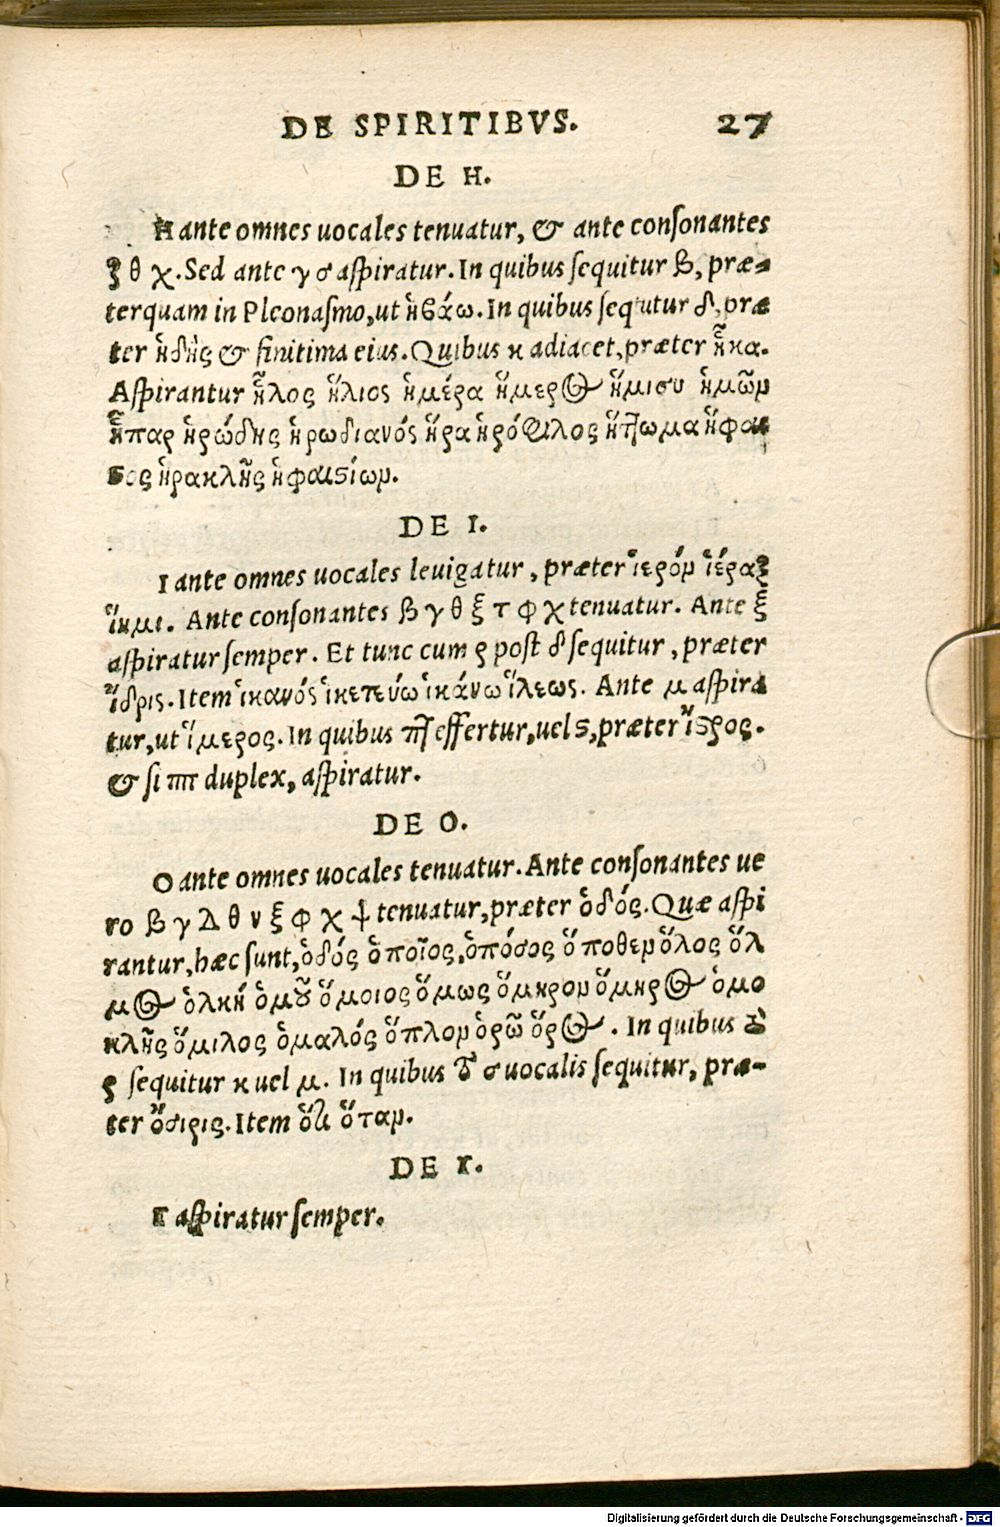 DE SPIRITIBVS. 27
DE H.
H ante omnes uocales tenuatur, & ante conſonantes
ξ θ χ. Sed ante γ σ aſpiratur. In quibus ſequitur β, præ-
terquam in Pleonaſmo, ut ἡβάω. In quibus ſequitur δ, præ
ter ἡδὴς & finitima eius. Quibus κ adiacet, præter ἧκα.
Aſpirantur ἧλος ἥλιος ἡμέρα ἥμερος ἥμισυ ἡμῶν
ἧπαρ ἡρώδης ἡρωδιανός ἥρα ἡρόφιλος ἥττωμα ἥφαι
στος ἡρακλῆς ἡφαιστίων.
DE I.
I ante omnes uocales leuigatur, præter ἱερόν ἱέραξ
ἵημι. Ante conſonantes β γ θ ξ τ φ χ tenuatur. Ante ξ
aſpiratur ſemper. Et tunc cum ρ poſt δ ſequitur, præter
ἴδρις. Item ἱκανός ἱκετεύω ἱκάνω ἵλεως. Ante μ aſpira
tur, ut ἵμερος. In quibus πτ effertur, uel ϛ, præter ἴϛρος.
& ſi ππ duplex, aſpiratur.
DE O.
O ante omnes uocales tenuatur. Ante conſonantes ue
ro β γ Δ θ ν ξ φ χ ψ tenuatur, præter ὁδός. Quæ aſpi
rantur, hæc ſunt, ὁδός ὁποῖος, ὁπόσος ὅποθεν ὅλος ὅλ
μος ὁλκή ὁμοῦ ὅμοιος ὅμως ὅμηρον ὅμηρος ὁμο
κλῆς ὅμιλος ὁμαλός ὅπλον ὁρῶ ὅρος. In quibus
ρ ſequitur κ uel μ. In quibus σ uocalis ſequitur, præ-
ter ὄσιρις. Item ὅτι ὅταν.
DE Υ.
Υ aſpiratur ſemper.
Digitalisierung gefördert durch die Deutsche Forschungsgemeinschaft - DFG